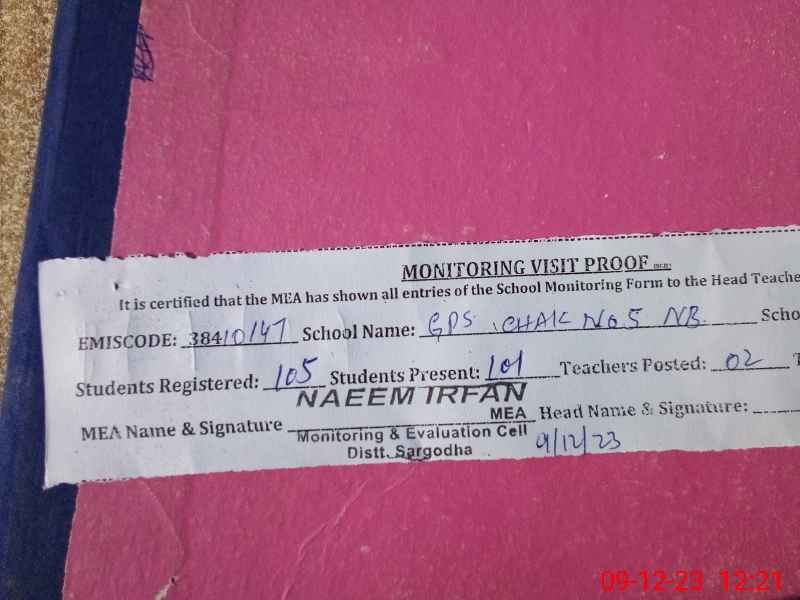 MONITORING VISIT PROOF
It is certified that the MEA has shown all entries of the School Monitoring Form to the Head Teache
EMISCODE: 38410147 School Name: GPS CHAK No 5 NB Scho
Students Registered: 105 Students Present: 101 Teachers Posted: 02 T
NAEEM IRFAN
MEA Name & Signature MEA Head Name & Signature:
Monitoring & Evaluation Cell
Distt. Sargodha 9/12/23
09-12-23 12:21